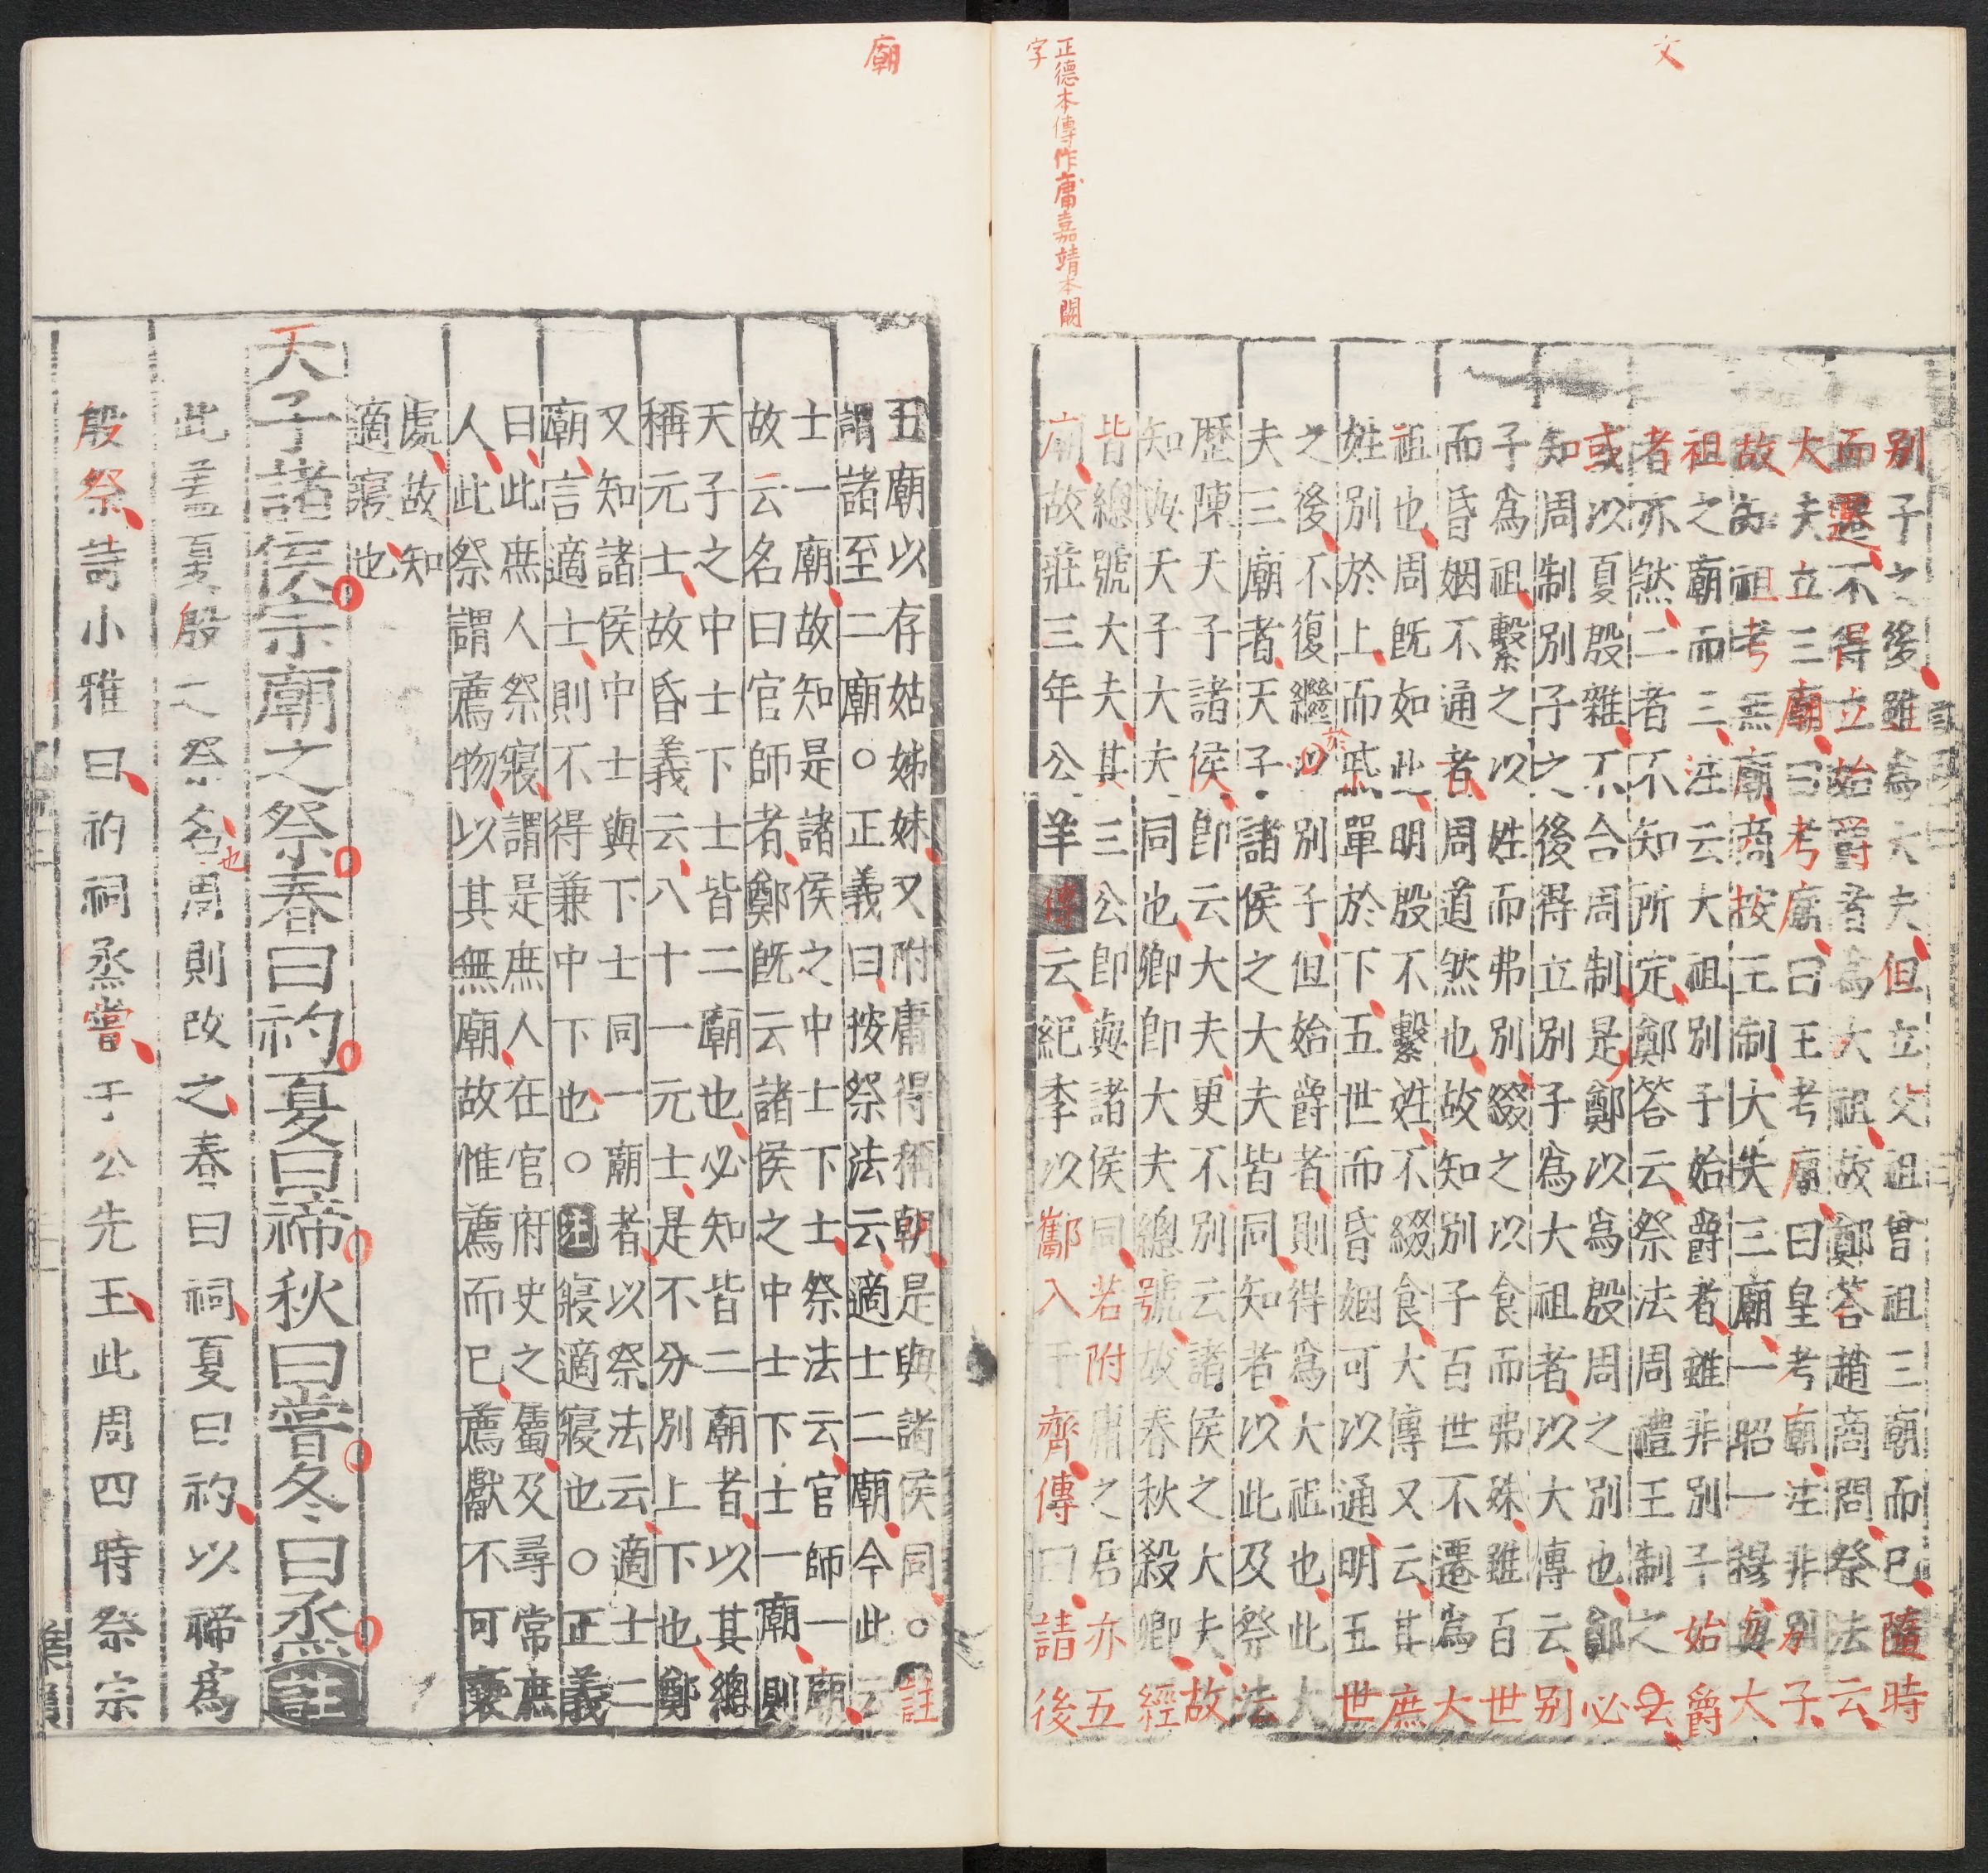 文
正德本傳作庸嘉靖本闕
字
别子之後雖為大夫但立父祖曾祖三廟而已隨時
而遷不得立始爵者為大祖故鄭荅趙商問祭法云
大夫立三廟曰考廟曰王考廟曰皇考廟注非别子
故知祖考無廟商按王制大夫三廟一昭一穆與大
祖之廟而三注云大祖别子始爵者雖非别子始爵
者亦然二者不知所定鄭荅云祭法周禮王制之云
或以夏殷雜不合周制是鄭以為殷周之别也鄭必
知周制别子之後得立别子為大祖者以大傳云别
子為祖繫之以姓而弗别綴之以食而弗殊雖百世
而昏姻不通者周道然也故知别子百世不遷為大
祖也周既如此明殷不繫姓不綴食大傳又云其庶
姓别於上而戚單於下五世而昏姻可以通明五世
之後不復繼以别子但始爵者則得為大祖也此大
夫三廟者天子諸侯之大夫皆同知者以此及祭法
歷陳天子諸侯即云大夫更不别云諸侯之大夫故
知與天子大夫同也卿即大夫總號故春秋殺卿經
皆總號大夫其三公即與諸侯同若附庸之君亦五
廟故莊三年公羊傳云紀李以酅入于齊傳曰請後
廟
五廟以存姑姊妹又附庸得稱朝是與諸侯同○註
謂諸至二廟○正義曰按祭法云適士二廟今此云
士一廟故知是諸侯之中士下士祭法云官師一廟
故云名曰官師者鄭既云諸侯之中士下士一廟則
天子之中士下士皆二廟也必知皆二廟者以其總
稱元士故昏義云八十一元士是不分别上下也鄭
又知諸侯中士與下士同一廟者以祭法云適士二
廟言適士則不得兼中下也○注寢適寢也○正義
曰此庶人祭寢謂是庶人在官府史之屬及尋常庶
人此祭謂薦物以其無廟故惟薦而已薦獻不可褻
處故知
適寢也
天子諸侯宗廟之祭春曰礿夏曰禘秋曰嘗冬曰烝註
此蓋夏殷之祭名也周則改之春曰祠夏曰礿以禘為
殷祭詩小雅曰礿祠烝嘗于公先王此周四時祭宗